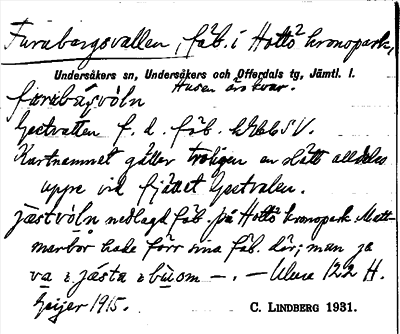 Furubergsvallen, fäb. i Hottö kronopark,
Undersåkers sn, Undersåkers och Offerdals tg, Jämtl. l.
Husen äro kvar.
furubásvöln
Gestvallen f. d. fäb.
Kartnamnet gäller troligen en slätt alldeles
uppe vid fjället Gestvalen.
jästvöln nedlagd fäb. på Hottö kronopark. Matt-
marbor hade förr sina fäb. där; man sa
va i jásta i bùom – . – Uluu 122 H.
Geijer 1915.
C. LINDBERG 1931.